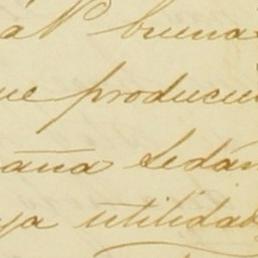 buena
que producen
aña Sedán
ya utilidad